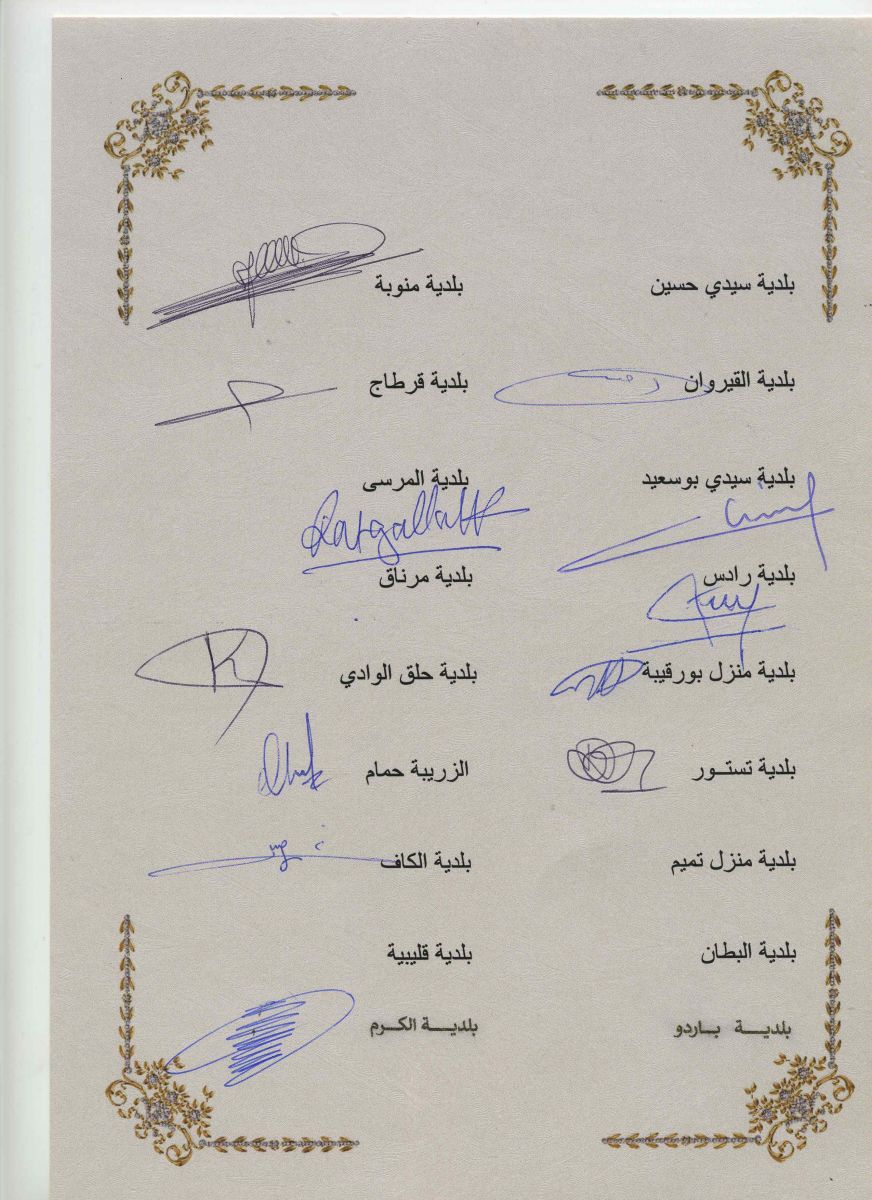 بلدية سيدي حسين
بلدية منوبة
بلدية القيروان
بلدية قرطاج
بلدية سيدي بوسعيد
بلدية المرسى
بلدية رادس
بلدية مرناق
بلدية منزل بورقيبة
بلدية حلق الوادي
بلدية تستــور
الزريبة حمام
بلدية منزل تميم
بلدية الكاف
بلدية البطان
بلدية قليبية
بلديــة بــاردو
بلديــة الكــرم